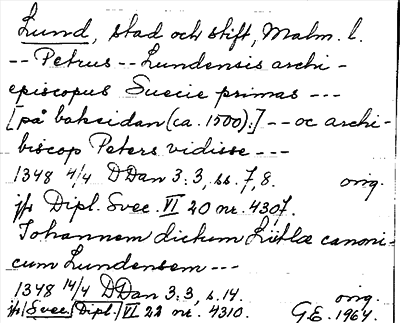 Lund, stad och stift, Malm. l.
-- Petrus -- Lundensis archi-
episcopus Suecie primas ---
[på baksidan (ca. 1500):] -- oc archi-
biscop Peters vidisse ---
1348 4/4 DDan 3:3, ss. 7, 8. orig.
jfr Dipl. Svec. VI 20 nr. 4307.
Johannem dictum Lütlæ canoni-
cum Lundensem ---
1348 14/4 DDan 3:3, s. 14. orig.
jfr Svec. Dipl. VI 22 nr. 4310. G.E. 1964.